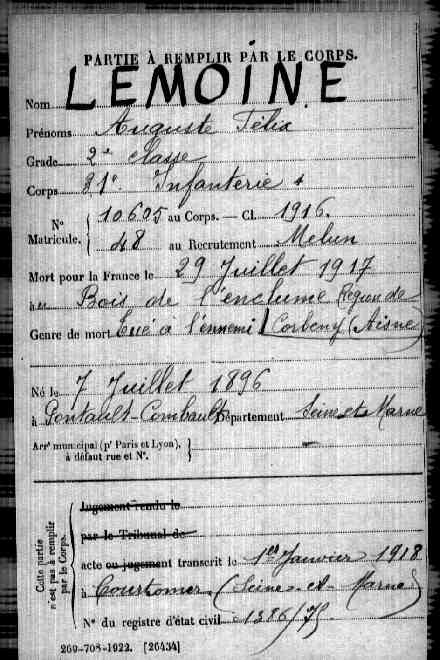 PARTIE À REMPLIR PAR LE CORPS.
Nom LEMOINE
Prénoms Auguste Félix
Grade 2e classe
Corps 31e Infanterie
N° Matricule. { 10605 au Corps. — Cl. 1916.
48 au Recrutement Melun
Mort pour la France le 29 Juillet 1917
à Bois de l'enclume Région de
Genre de mort Tué à l'ennemi Corbeny (Aisne)
Né le 7 Juillet 1896
à Pontault-Combault Département Seine et Marne
Arrt municipal (pr Paris et Lyon), à défaut rue et N°. } —
Cette partie n'est pas à remplir par le Corps.
Jugement rendu le
par le Tribunal de
acte ou jugement transcrit le 1er Janvier 1918
à Courtomer (Seine-et-Marne)
N° du registre d'état civil 1386/75
269-708-1922. [26434]